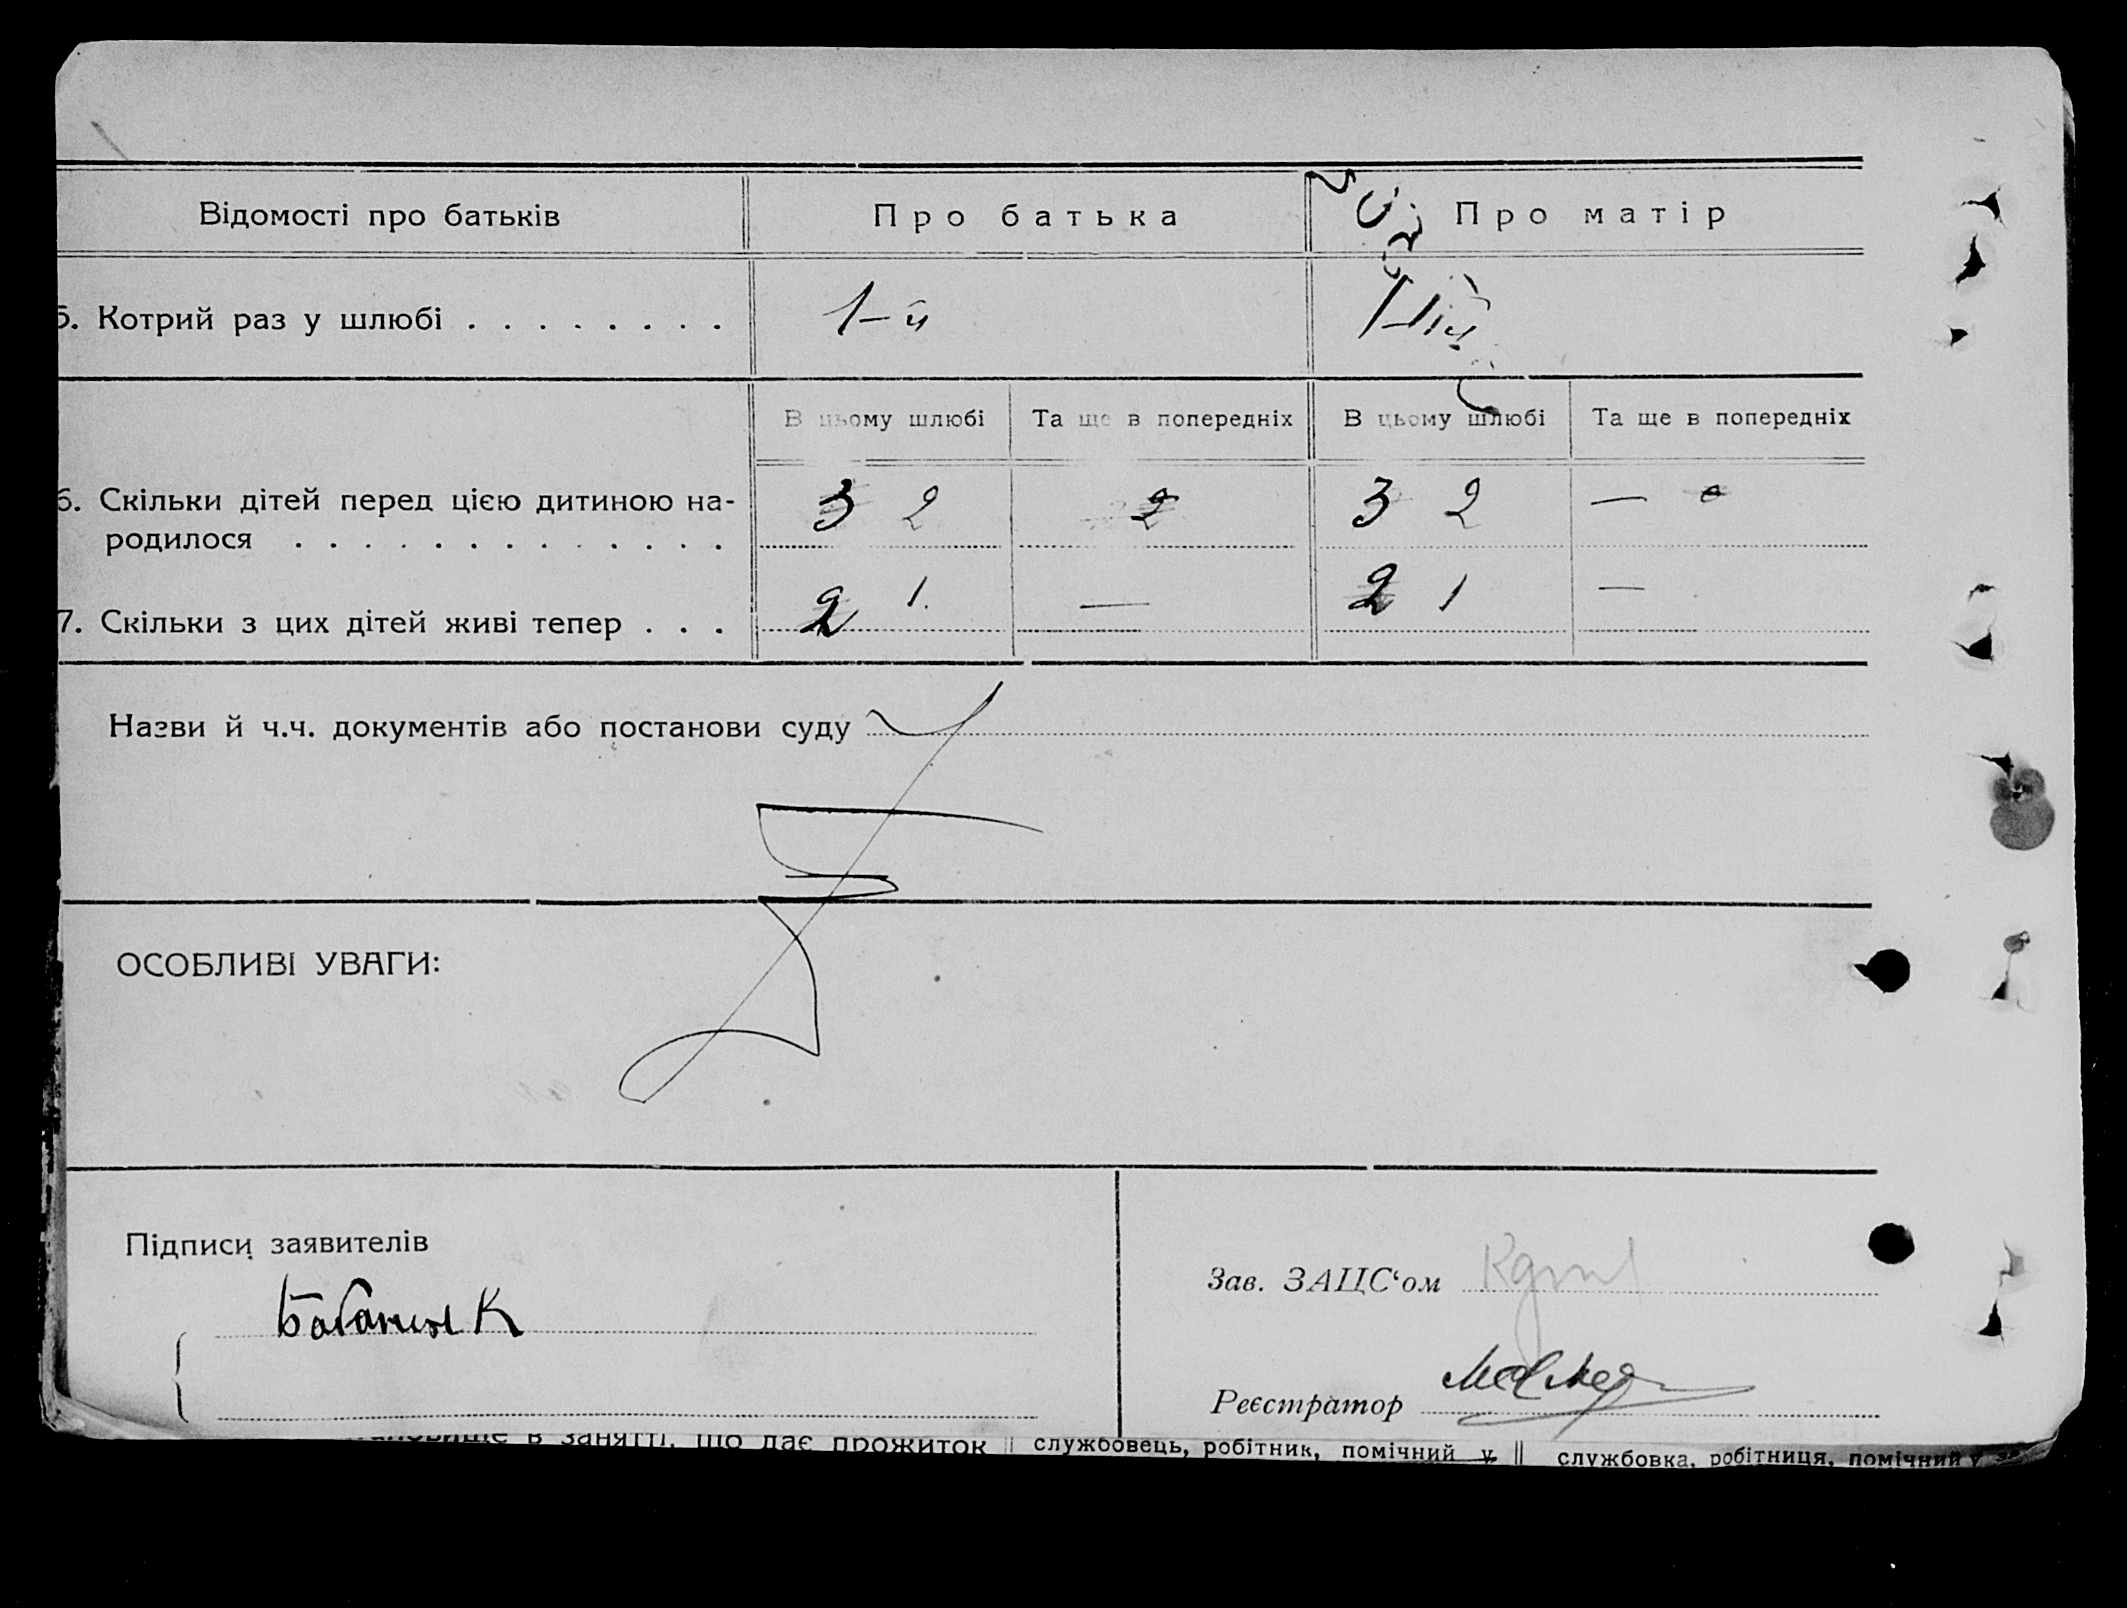 Відомості про батьків Про батька Про матір
5. Котрий раз у шлюбі . . . . . . . . 1-й
В цьому шлюбі Та ще в попередніх В цьому шлюбі Та ще в попередніх
6. Скільки дітей перед цією дитиною на-
родилося . . . . . . . . . . . . . 3 2 2 3 2 —
7. Скільки з цих дітей живі тепер . . . 2 1. — 2 1 —
Назви й ч.ч. документів або постанови суду
ОСОБЛИВІ УВАГИ:
Підписи заявителів
К
Зав. ЗАЦС‘ом
Реєстратор
в занятті, що дає прожиток службовець, робітник, помічний у службовка, робітниця, помічний у